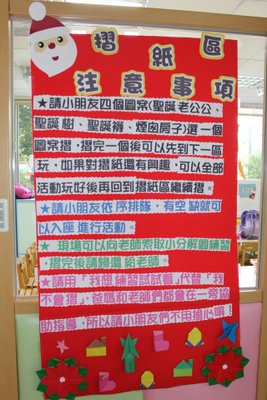 摺紙區
注意事項
★請小朋友四個圖案(聖誕老公公、
聖誕樹、聖誕襪、煙囪房子)選一個
圖案摺，摺完一個後可以先到下一區
玩，如果對摺紙還有興趣，可以全部
活動玩好後再回到摺紙區繼續摺。
★請小朋友依序排隊，有空缺就可
以入座進行活動。
★現場可以向老師索取小分解圖練習
，摺完後請歸還給老師。
★請用「我想練習試試看」代替「我
不會摺」，爸媽和老師們都會在一旁協
助指導，所以請小朋友們不用擔心唷！